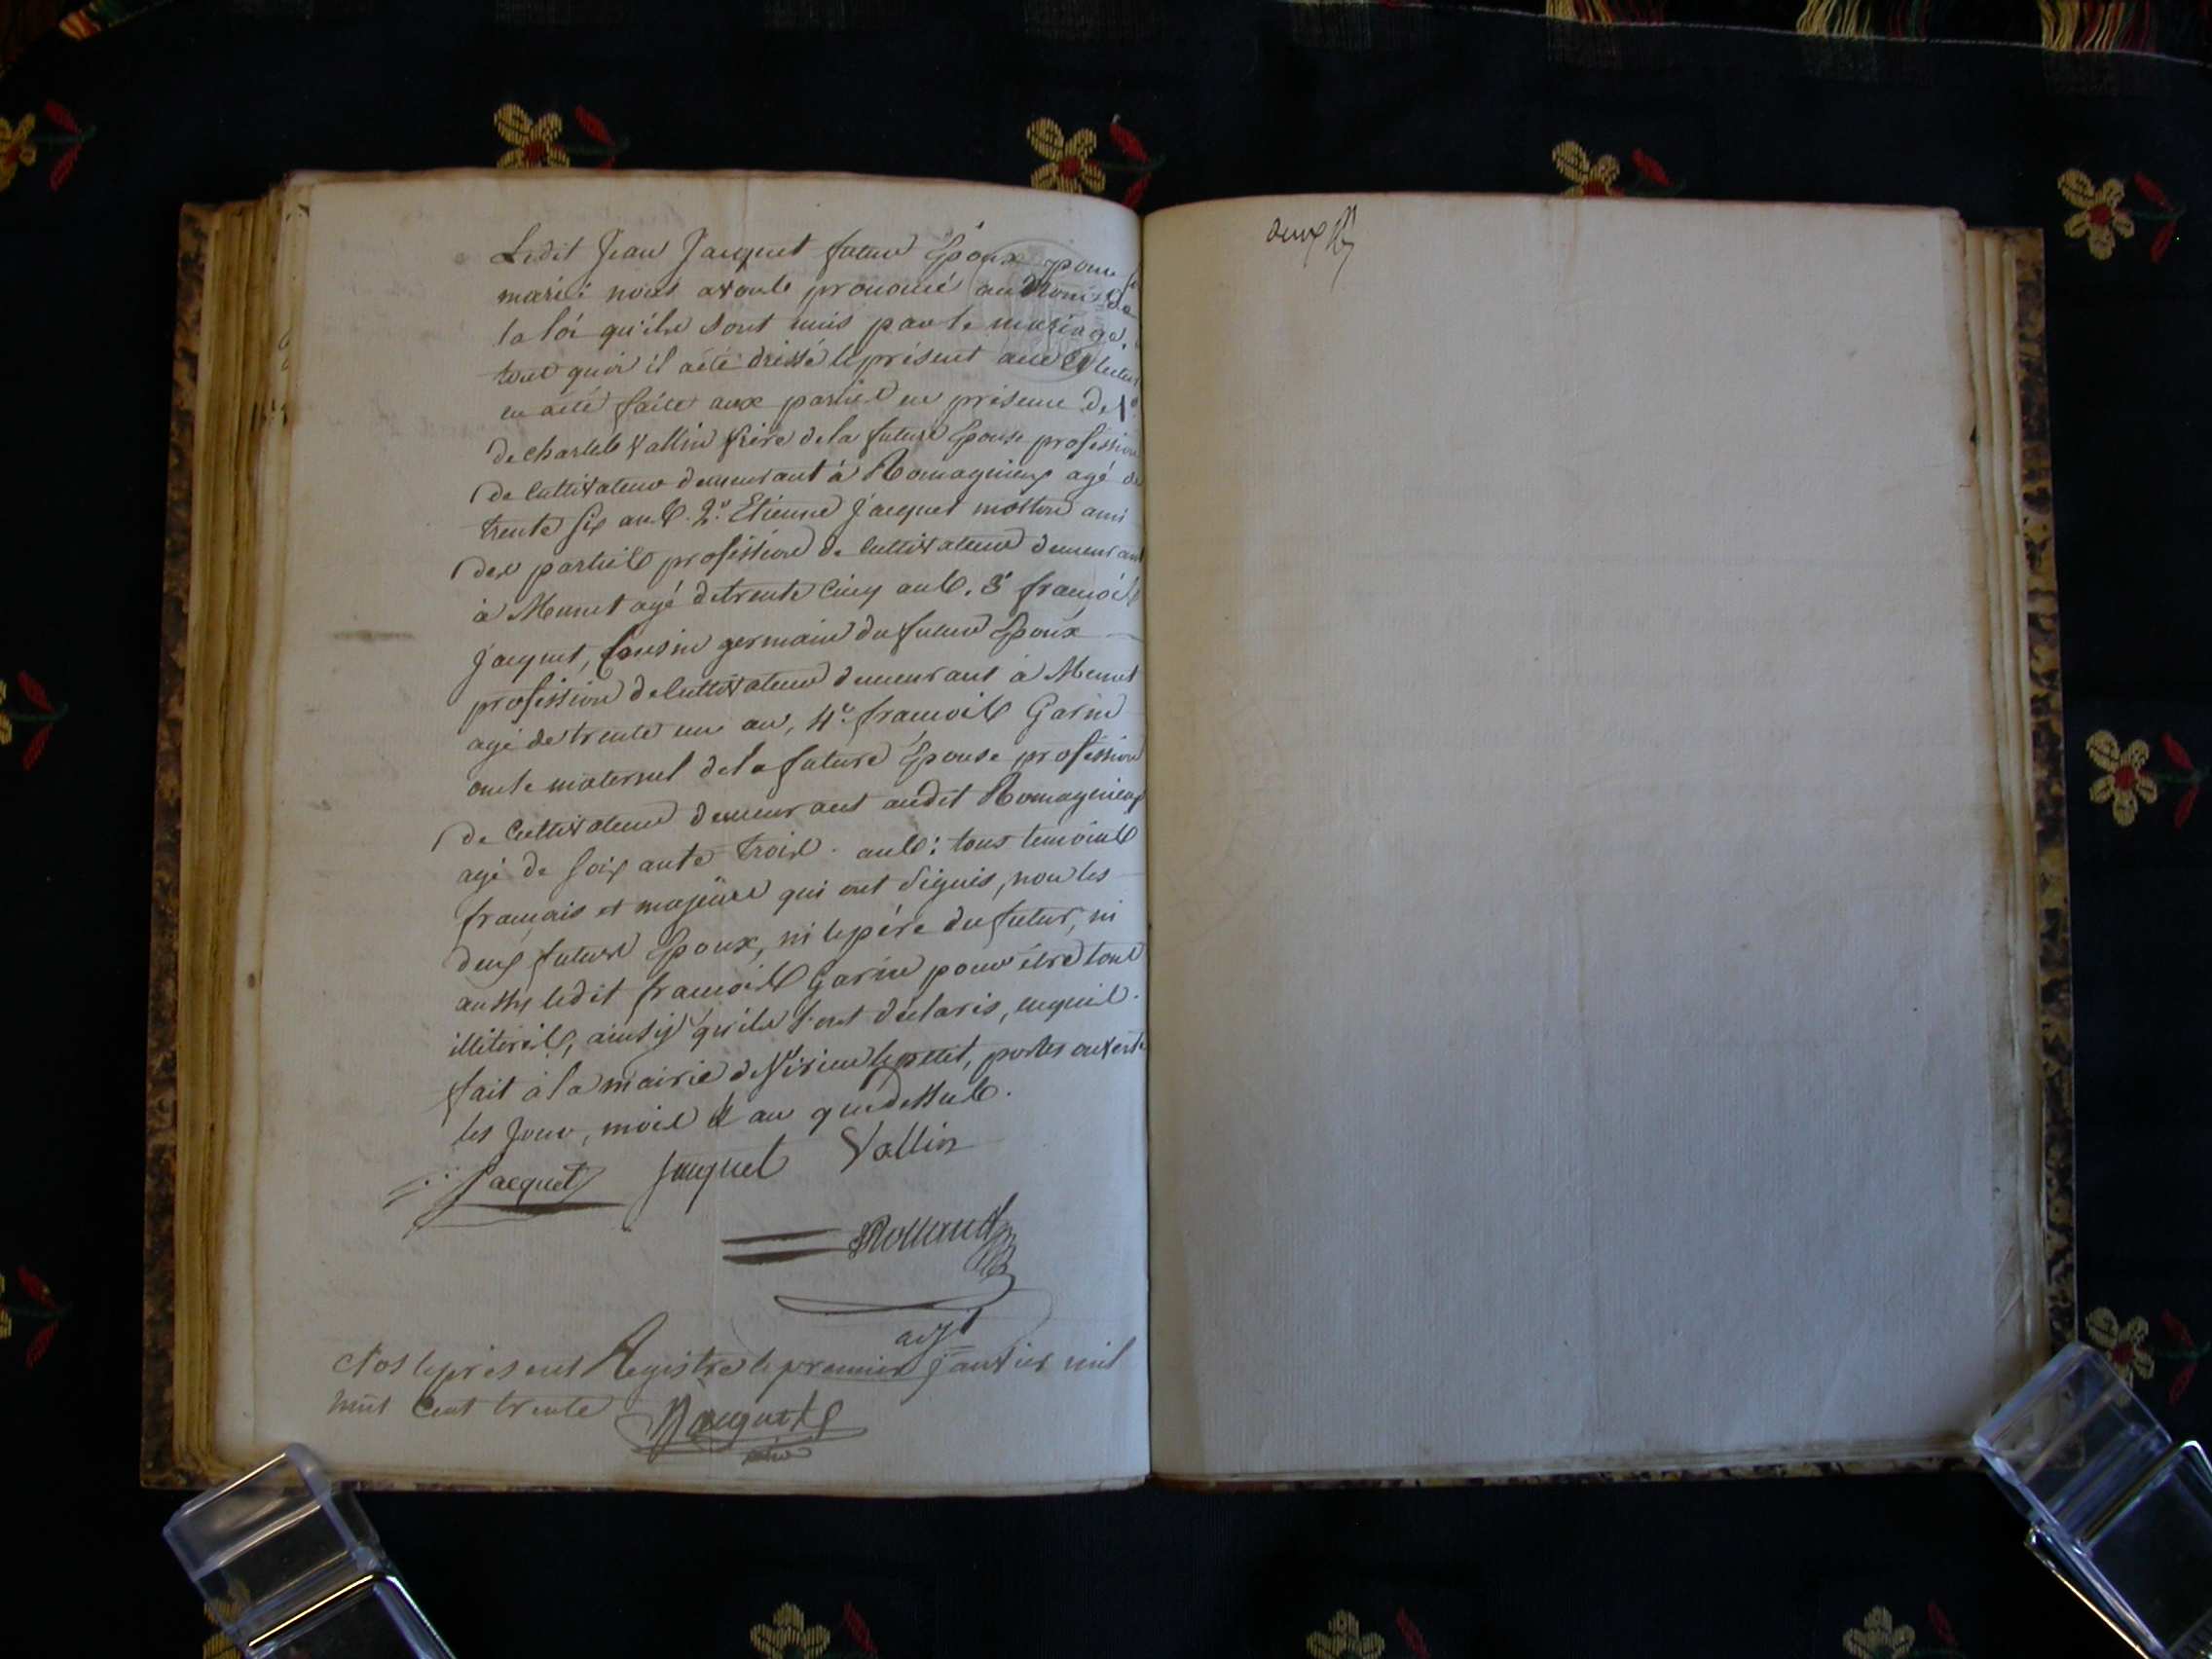 Ledit Jean Jacquet futur Epoux pour
marié: nous avons prononcé au Nom de
la loi qu'ils sont unis par le mariage,
tout quoi il a été dréssé le présent acte et lecture
en a été faite aux parties en présence de 1°
de charles Vallin frère de la future Epouse profession
de cultivateur demeurant à Romagnieux agé de
trente six ans. 2° Etienne Jacquet motton ami
des parties profession de cultivateur demeurant
à Mennet agé de trente cinq ans. 3° françois
Jacquet, Cousin germain du futur Epoux
profession de cultivateur demeurant à Mennet
agé de trente un an, 4° francois Garin
oncle maternel de la future Epouse profession
de cultivateur demeurant audit Romagnieux
agé de soixante trois ans: tous temoins
français et majeurs qui ont signés, non les
deux futurs Epoux, ni le père du futur, ni
aussy ledit francois Garin pour être tous
illiterés, ainsy qu'ils l'ont déclarés, enquis.
fait à la mairie de Virieu le petit, portes ouverte
les Jour, mois & an que dessus.
Jacquet Jacquet Vallin
Rolland
adjt
Clos le présent Registre le premier janvier mil
huit Cent trente
deux